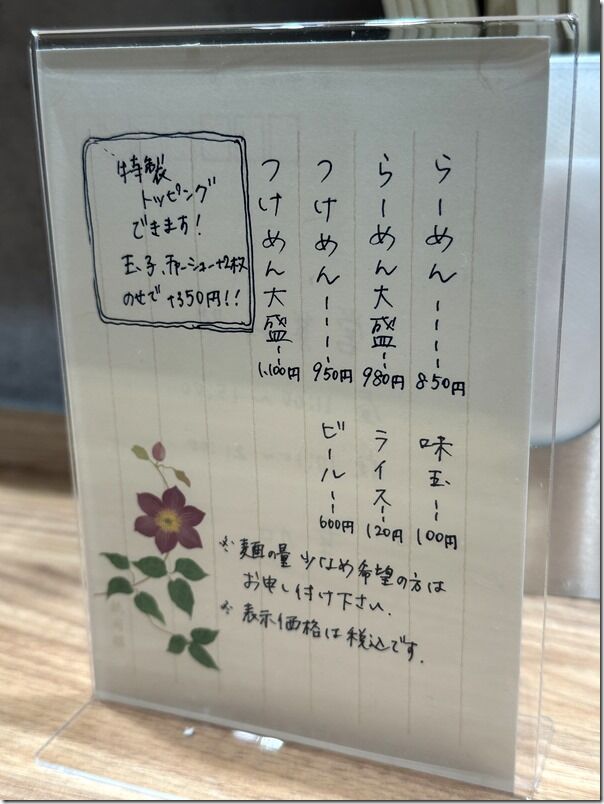 らーめん----850円
らーめん大盛--980円
つけめん----950円
つけめん大盛--1,100円
味玉--100円
ライス--120円
ビール--600円
特製
トッピング
できます!
玉子、チャーシュー+2枚
のせで+350円!!
※麺の量少なめ希望の方は
お申し付け下さい.
※表示価格は税込です.